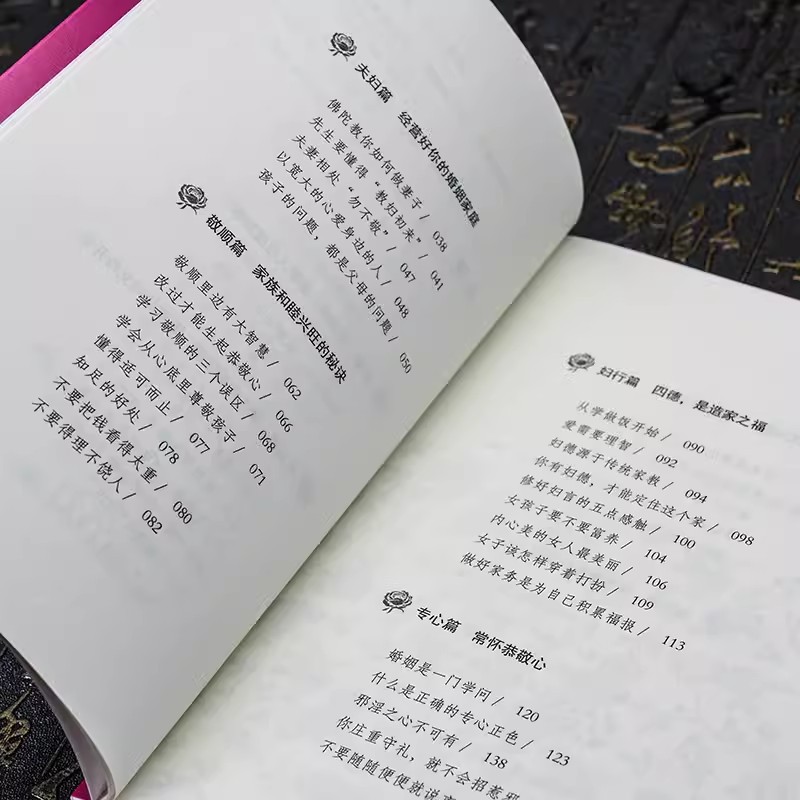 夫妇篇 经营好你的婚姻家庭
佛陀教你如何做妻子 / 038
先生要懂得“教妇初来” / 041
夫妻相处“勿不敬” / 047
以宽大的心爱身边的人 / 048
孩子的问题，都是父母的问题 / 050
敬顺篇 家族和睦兴旺的秘诀
敬顺里边有大智慧 / 062
改过才能生起恭敬心 / 066
学习敬顺的三个误区 / 068
学会从心底里尊敬孩子 / 071
懂得适可而止 / 077
知足的好处 / 078
不要把钱看得太重 / 080
不要得理不饶人 / 082
妇行篇 四德，是造家之福
从学做饭开始 / 090
爱需要理智 / 092
妇德源于传统家教 / 094
你有妇德，才能定住这个家 / 098
修好妇言的五点感触 / 100
女孩子要不要富养 / 104
内心美的女人最美丽 / 106
女子该怎样穿着打扮 / 109
做好家务是为自己积累福报 / 113
专心篇 常怀恭敬心
婚姻是一门学问 / 120
什么是正确的专心正色 / 123
邪淫之心不可有 / 138
你庄重守礼，就不会招惹邪
不要随随便便就说